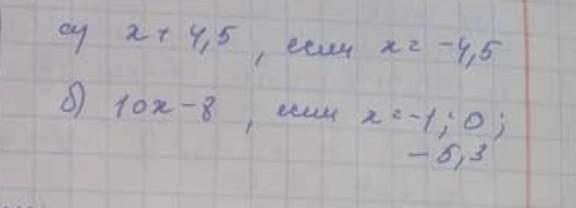 а) x + 4,5 , если x = -4,5
б) 10x - 8 , если x = -1; 0;
-5,3